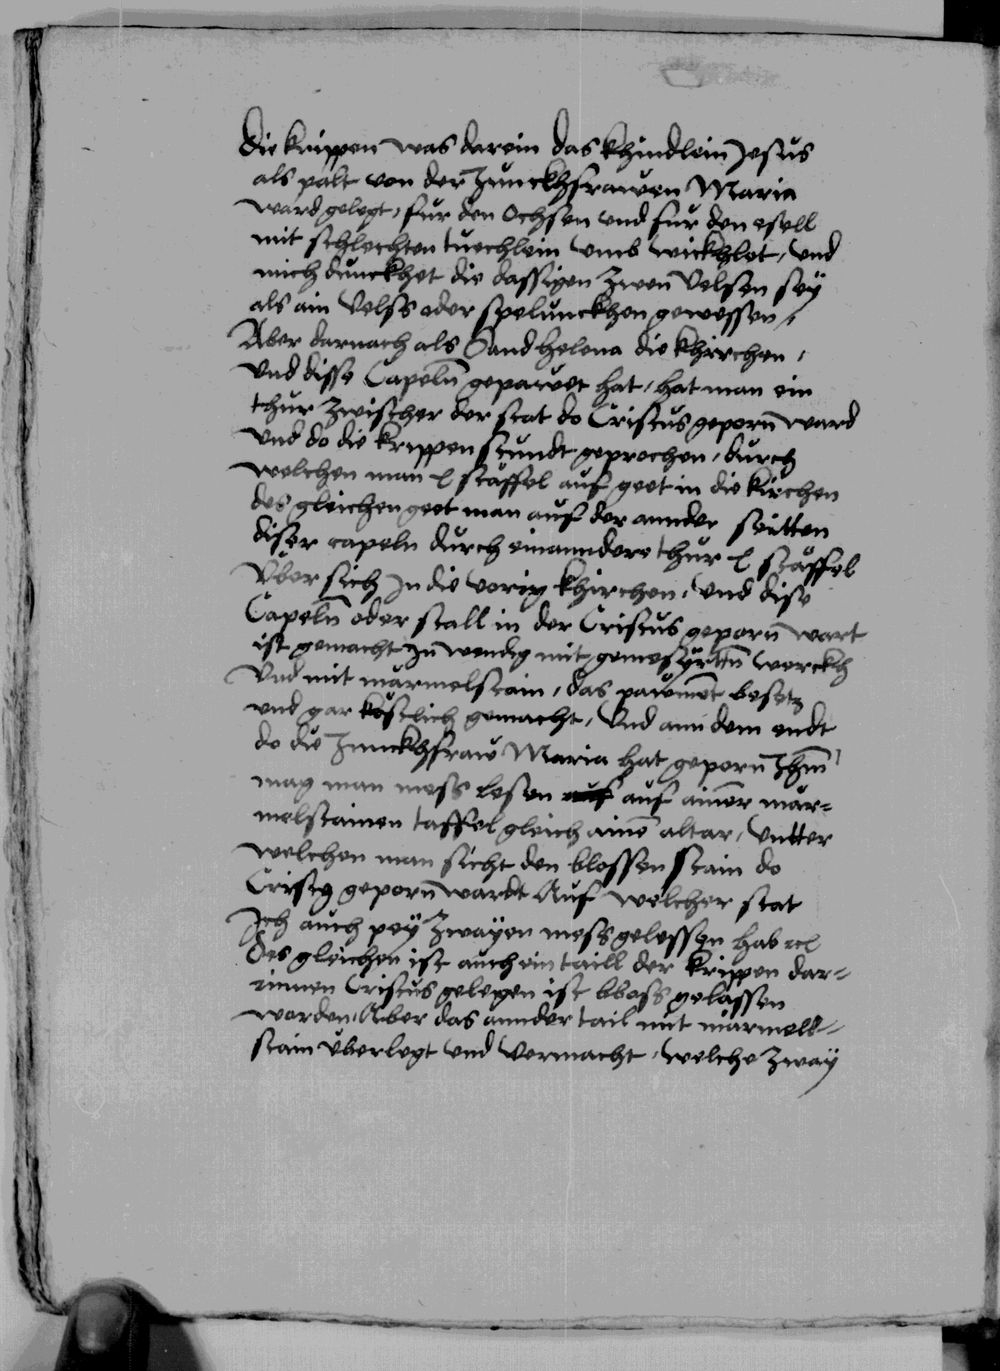 die krippen was darein das khindlein Jesus
als palt von der Junckhfrawen Maria
ward gelegt, fur den Ochsen vnd fur den esell
mit schlechten tuechlein vmb wickhlet, vnd
mich dunckhet die dassigen zwen velsen sey
als ain velss oder spelunckhen gewessen,
Aber darnach als Sand helena die khirchen,
vnd disse Capeln̄ gepawet hat, hat man ein
thur zwischer der stat do Cristus geporn̄ ward
vnd do die krippen stundt geprochen, durch
welchen man stäffel auf geet in die kirchen
des gleichen geet man auf der annder seitten
diser capeln durch einanndere thur stäffel
vber sich In die vorig khirchen, vnd dise
Capeln̄ oder stall in der Cristus geporn̄ wart
ist gemacht In wendig mit werckh
vnd mit marmelstain, das paviment besetz
vnd gar kostlich gemacht, vnd ann dem endt
do die Junckhfraw Maria hat geporn̄ Jhm̄
mag man mess lesen auf auf ainer mar=
melstainen taffel gleich ainē altar, vntter
welchen man sicht den blossen stain do
geporn̄ wardt Auf welcher stat
Ich auch pey zwayen mess gelessen hab
des gleichen ist auch ein taill der krippen dar=
innen Cristus gelegen ist bloss gelassen
worden, Aber das annder tail mit marmell=
stain vberlegt vnd vermacht, welche zway